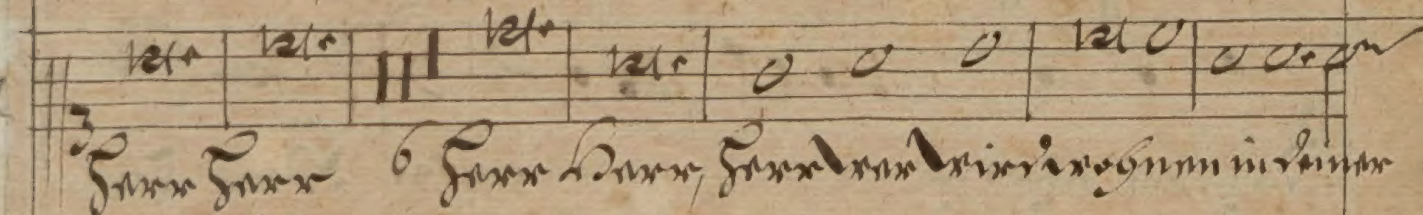 3
Herr Herr 6 Herr Herr, Herr wer wird wohnen in deiner